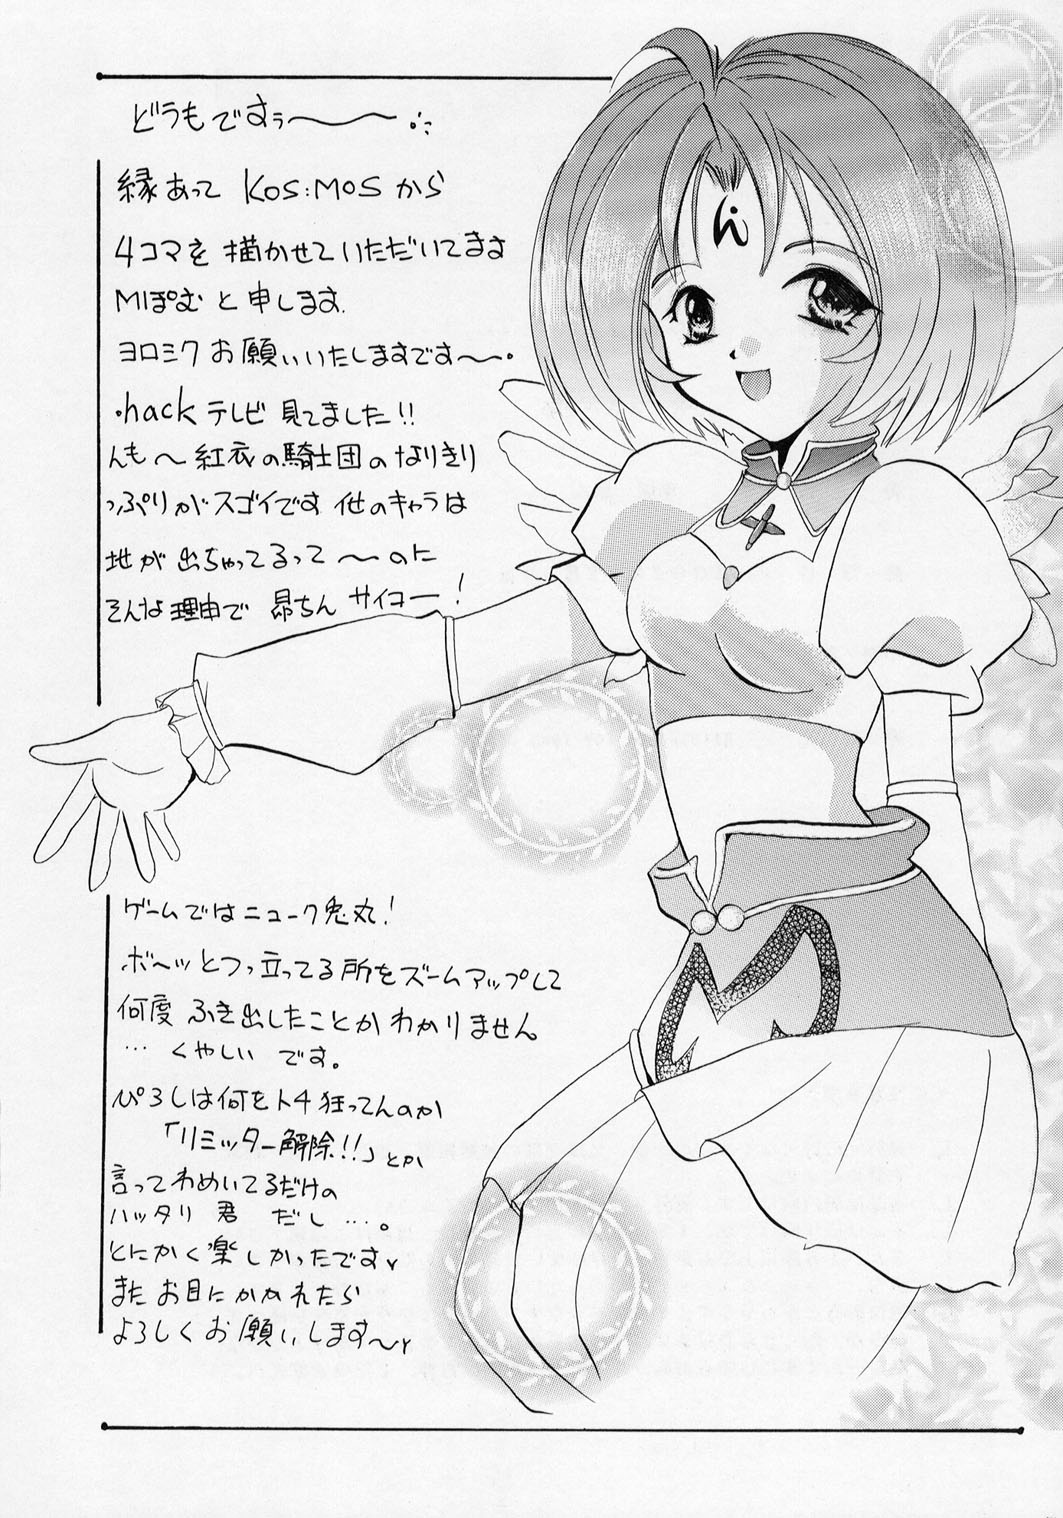 どうもですぅ〜〜
縁あって KOS:MOSから
4コマを 描かせていただいてます
Mぽむ と 申します.
ヨロシク お願いいたしますです〜.
.hack テレビ 見てました!!
んも〜 紅衣の騎士団の なりきり
っぷりが スゴイです 他のキャラは
地が 出ちゃってるって 〜のに
そんな 理由で 昴ちん サイコー!
ん
ゲームではニューク兎丸!
ボ〜ッとつっ立ってる 所を ズームアップして
何度 ふき出したことか わかりません
… くやしい です。
ぴろしは 何を トチ狂ってんのか
「リミッター解除!!」とか
言って わめいてるだけの
ハッタリ 君 だし …。
とにかく 楽しかったです
また お目に かかれたら
よろしく お願いします〜